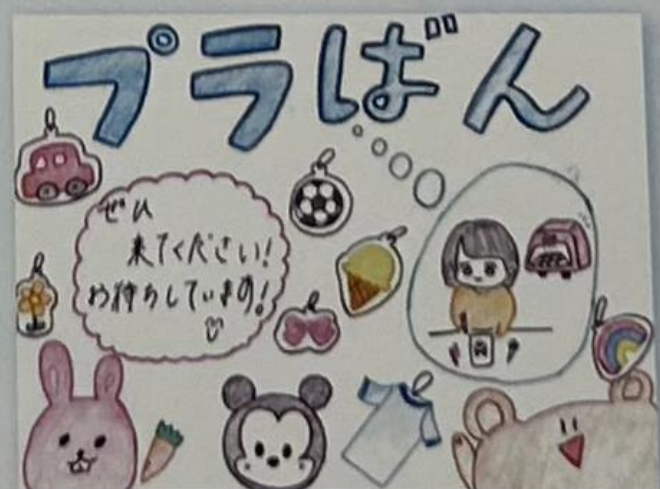 プラばん
ぜひ
来てください!
お待ちしています!